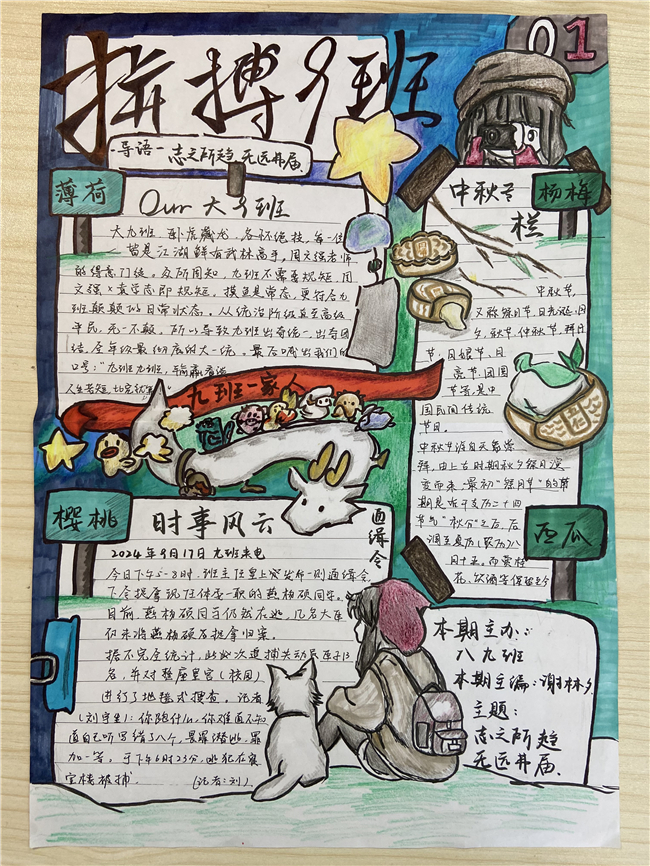 拼搏9班
01
导语一 志之所趋 无远弗届
薄荷
Our 大9班
大九班,卧虎藏龙,各怀绝技,每一位
皆是江湖鲜有武林高手,周文强老师
的得意门徒。众所周知,九班不需要规矩,周
即规矩。摸鱼是常态,更符合九
班颠颠的日常状态。从统治阶级直至高级
平民,无一不颠,所以导致九班出奇统一,出奇团
结,全年级最彻底的大一统。最后喊出我们的
口号:“九班九班,
人生苦短,
九班一家人
中秋节
栏
杨梅
中秋节,
又称祭月节、月光诞、月
夕、秋节、仲秋节、拜月
节、月娘节、月
亮节、团圆
节等,是中
国民间传统
节日。
中秋节源自天象崇
拜,由上古时期秋夕祭月演
变而来。最初“祭月节”的节
期是在干支历二十四
节气“秋分”这天,后
调至夏历(农历)八
月十五。
西瓜
樱桃
时事风云
通缉令
2024年9月17日 九班来电
今日下午5-8时,班主任皇上突发布一则通缉令,
下令捉拿现任体委一职的燕柏硕同学。
目前,燕柏硕同学仍然在逃,几名大臣
仍未将燕柏硕捉拿归案。
据不完全统计,此次追捕共动员
名,并对整座皇宫(校园)
进行了地毯式搜查。记者
(刘宇生):你跑什么,你难道不知
道自己听写错了八个,畏罪潜逃,罪
加一等,于下午6时23分,逃犯在
被捕。
(记者:刘)
本期主办:
八九班
本期主编:谢林夕
主题:
志之所趋
无远弗届